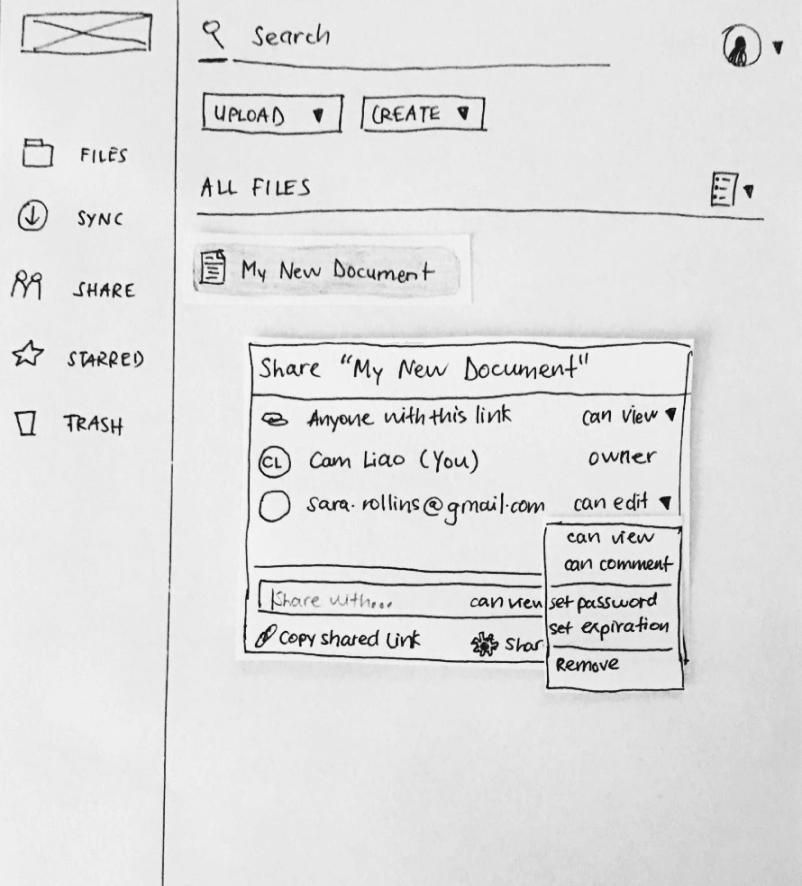 Search
UPLOAD
CREATE
FILES
SYNC
SHARE
STARRED
TRASH
ALL FILES
My New Document
Share "My New Document"
Anyone with this link can view
CL Cam Liao (You) owner
sara.rollins@gmail.com can edit
can view
can comment
set password
set expiration
Remove
Share with... can view
Copy shared link Shar